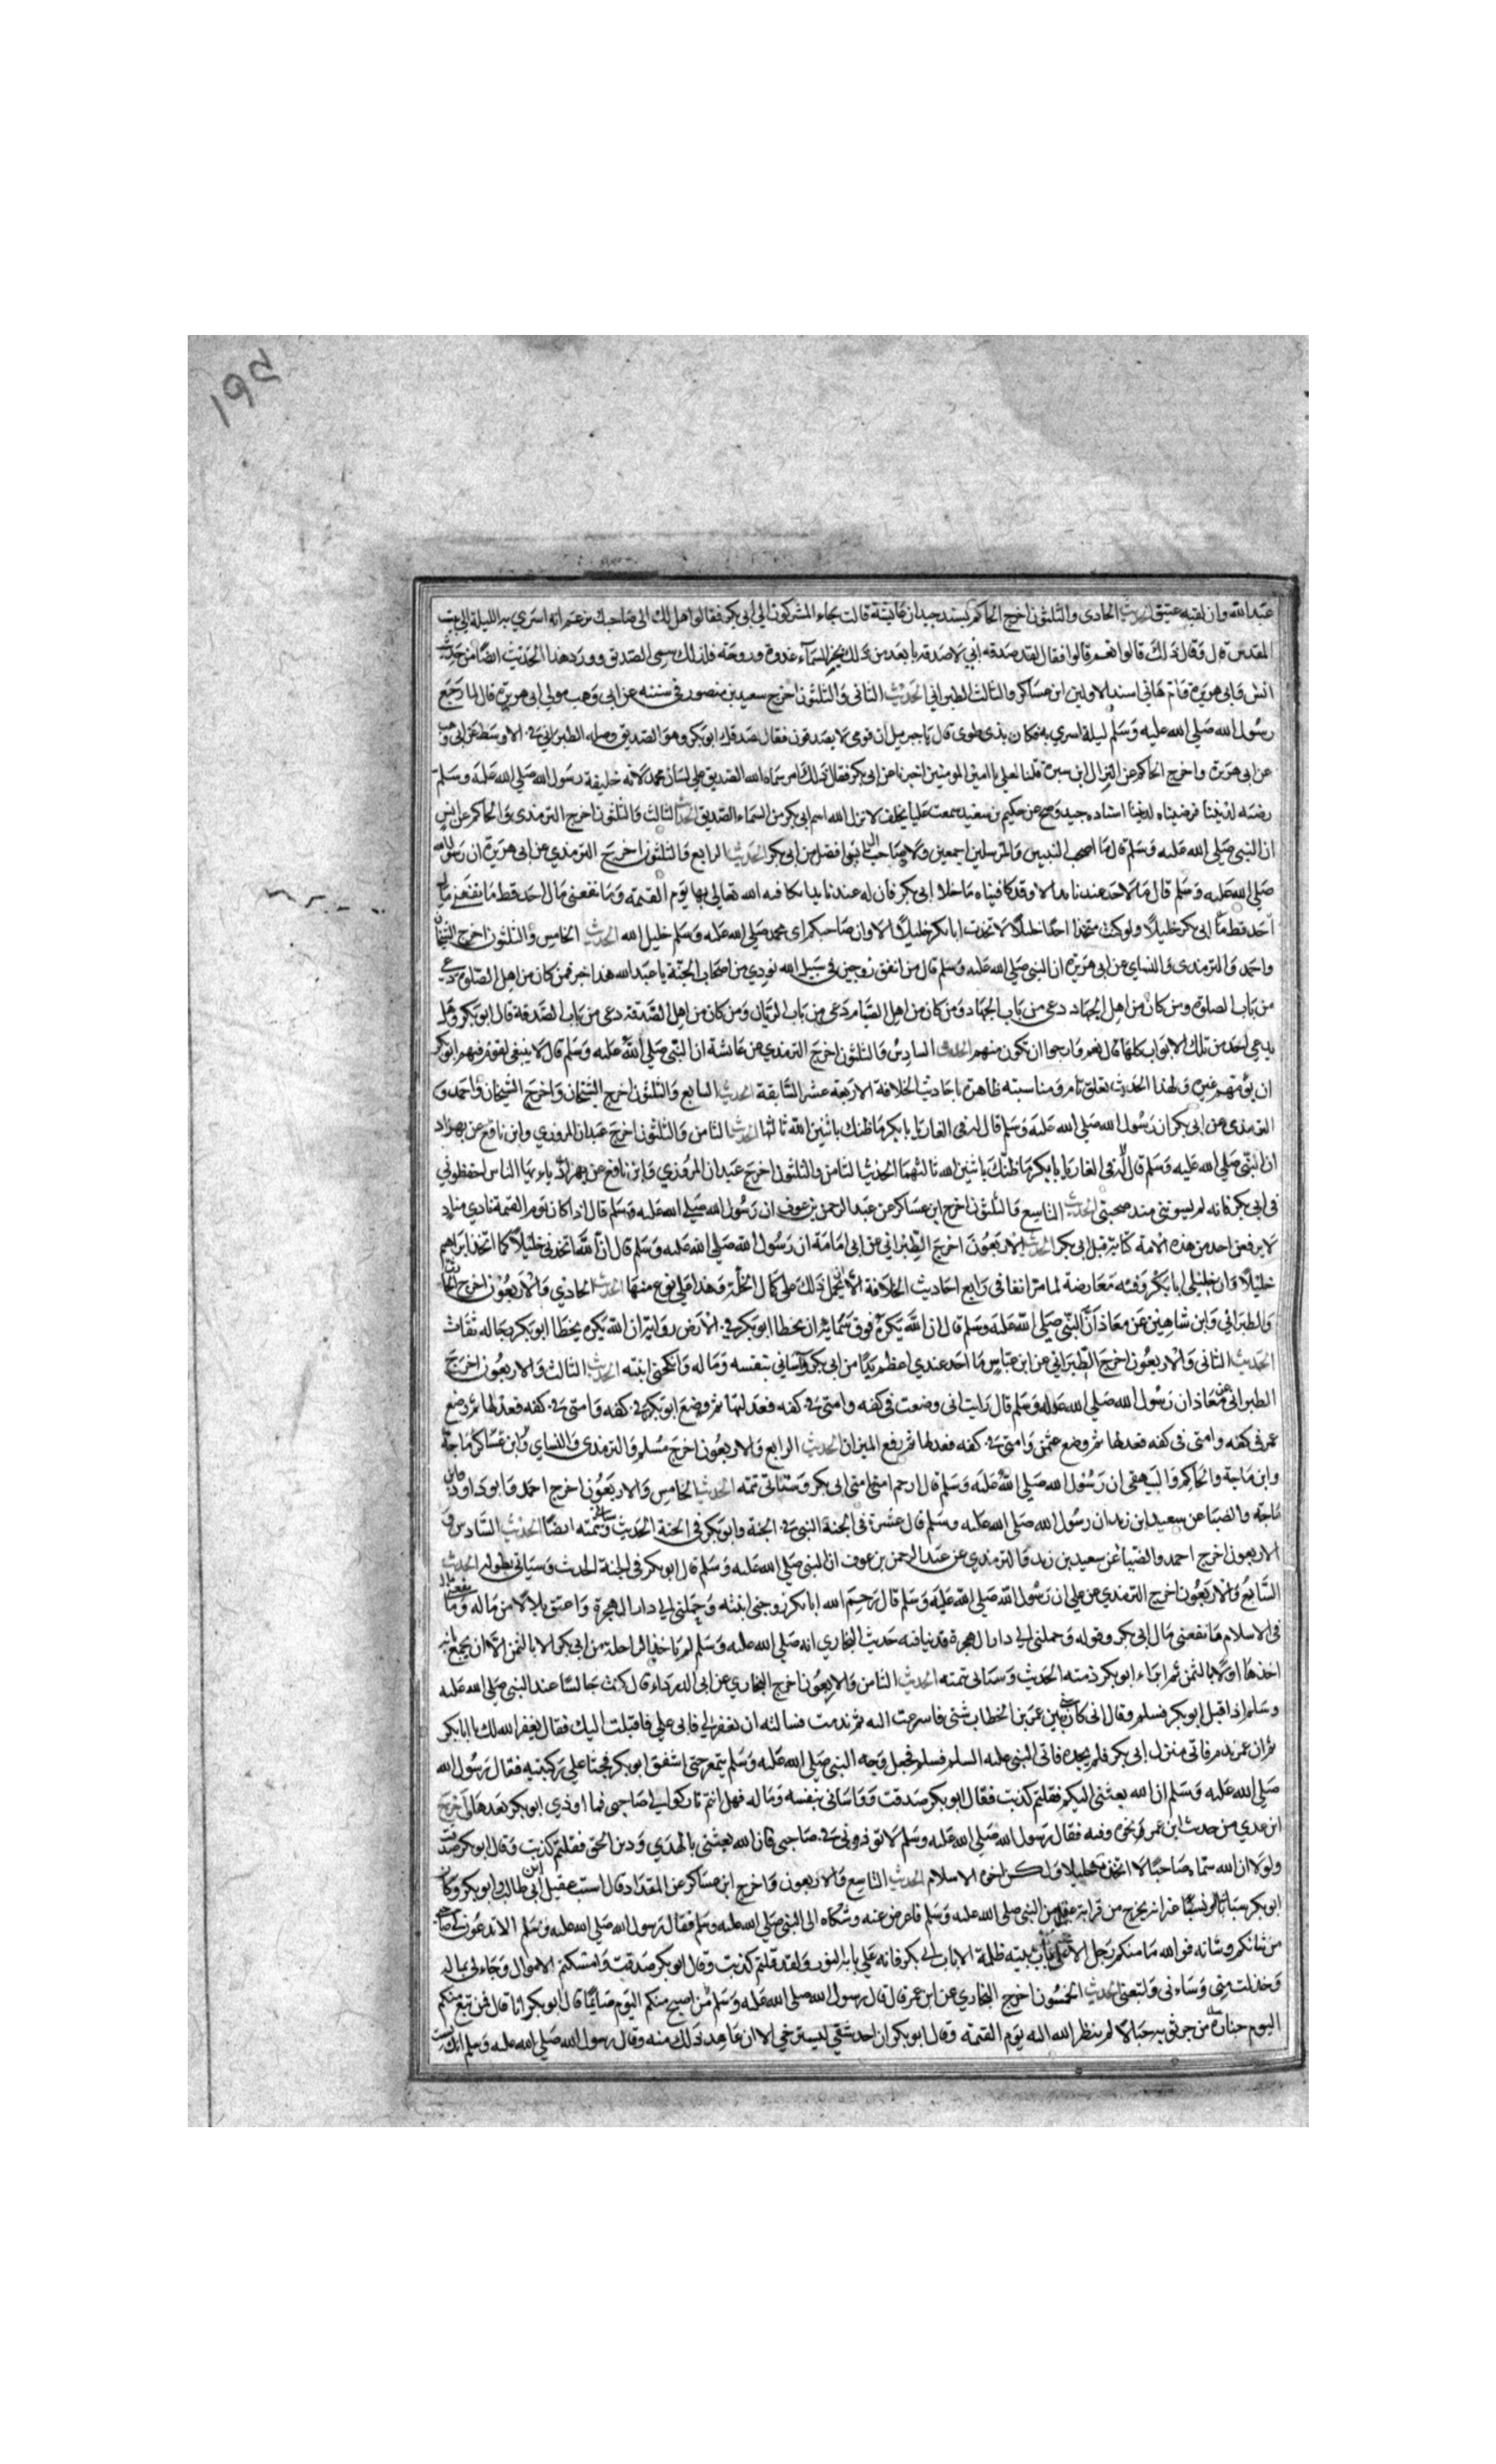 ١٩٤
عبد الله وان لقبه عتيق الحديث الحادي والثلثون اخرج الحاكم بسند جيد ان عايشة قالت جاء المشركون الي ابي بكر فقالوا هل لك الى صاحبك يزعم انه اسري به الليلة الي بيت
المقدس قال وقال ذلك قالوا نعم قالوا فقال لقد صدق اني لاصدقه بابعد من ذلك بخبر السماء غدوة وروحة فلذلك سمي الصديق وورد هذا الحديث ايضا من حديث
انس وابي هريرة وام هاني اسند الاولين ابن عساكر والثالث الطبراني الحديث الثاني والثلثون اخرج سعيد بن منصور في سننه عن ابي وهب مولي ابي هريرة قال لما رجع
رسول الله صلي الله عليه وسلم ليلة اسري به فكان بذي طوي قال يا جبريل ان قومي لا يصدقون فقال يصدقك ابو بكر وهو الصديق وصله الطبراني في الاوسط عن ابي وهب
عن ابي هريرة واخرج الحاكم عن النزال ابن سبرة قلنا لعلي يا امير المومنين اخبرنا عن ابي بكر فقال ذلك امر سماه الله الصديق علي لسان محمد لانه خليفة رسول الله صلي الله عليه وسلم
رضيه لديننا فرضيناه لدنيانا اسناده جيد وصح عن حكيم بن سعيد سمعت عليا يحلف لانزل الله اسم ابي بكر من السماء الصديق الحديث الثالث والثلثون اخرج الترمذي والحاكم عن انس
ان النبي صلي الله عليه وسلم قال ما صحب النبيين والمرسلين اجمعين ولا صاحب افضل من ابي بكر الحديث الرابع والثلثون اخرج الترمذي عن ابي هريرة ان رسول الله
صلي الله عليه وسلم قال ما لاحد عندنا يد الا وقد كافيناه ما خلا ابي بكر فان له عندنا يدا يكافيه الله تعالي بها يوم القيمة وما نفعني مال احد قط ما نفعني مال
احد قط مال ابي بكر خليلا ولو كنت متخذا احدا خليلا لاتخذت ابا بكر خليلا الا وان صاحبكم اي محمد صلي الله عليه وسلم خليل الله الحديث الخامس والثلثون اخرج الشيخان
واحمد والترمذي والنساي عن ابي هريرة ان النبي صلي الله عليه وسلم قال من انفق زوجين في سبيل الله نودي من اصحاب الجنة يا عبد الله هذا خير فمن كان من اهل الصلوة دعي
من باب الصلوة ومن كان من اهل الجهاد دعي من باب الجهاد ومن كان من اهل الصيام دعي من باب الريان ومن كان من اهل الصدقة دعي من باب الصدقة قال ابو بكر وهل
يدعي احد من تلك الابواب كلها قال نعم وارجوا ان تكون منهم الحديث السادس والثلثون اخرج الترمذي عن عايشة ان النبي صلي الله عليه وسلم قال لا ينبغي لقوم فيهم ابو بكر
ان يؤمهم غيره ولهذا الحديث تعلق تام ومناسبته ظاهرة باحاديث الخلافة الاربعة عشر السابقة الحديث السابع والثلثون اخرج الشيخان واخرج الشيخان واحمد و
الترمذي عن ابي بكر ان رسول الله صلي الله عليه وسلم قال له في الغار يا ابا بكر ما ظنك باثنين الله ثالثهما الحديث الثامن والثلثون اخرج عبدان المروزي وابن نافع عن بهزاد
ان النبي صلي الله عليه وسلم قال له في الغار يا ابا بكر ما ظنك باثنين الله ثالثهما الحديث الثامن والثلثون اخرج عبدان المروزي وابن نافع عن بهزاد يا ايها الناس احفظوني
في ابي بكر فانه لم يسؤني منذ صحبتي الحديث التاسع والثلثون اخرج ابن عساكر عن عبد الرحمن بن عوف ان رسول الله صلي الله عليه وسلم قال اذا كان يوم القيمة نادي مناد
لا يرفعن احد من هذه الامة كتابة قبل ابي بكر الحديث الاربعون اخرج الطبراني عن ابي امامة ان رسول الله صلي الله عليه وسلم قال ان الله اتخذني خليلا كما اتخذ ابراهيم
خليلا وان خليلي ابا بكر وفيه معارضة لما مر انفا في رابع احاديث الخلافة الا ان يحمل ذلك علي كمال الخلة وهذا علي نوع منها الحديث الحادي والاربعون اخرج الحارث
والطبراني وابن شاهين عن معاذ ان النبي صلي الله عليه وسلم قال ان الله يكره فوق سمايه ان يخطا ابو بكر في الارض رواية ان الله يكره يخطا ابو بكر رجاله ثقات
الحديث الثاني والاربعون اخرج الطبراني عن ابن عباس ما احد عندي اعظم يدا من ابي بكر وآساني بنفسه وماله وانكحني ابنته الحديث الثالث والاربعون اخرج
الطبراني عن معاذ ان رسول الله صلي الله عليه وسلم قال رايت اني وضعت في كفه وامتي في كفه فعدلتها ثم وضع ابو بكر في كفه وامتي في كفه فعدلها ثم وضع
عمر في كفه وامتي في كفه فعدلها ثم وضع عثمن وامتي في كفه فعدلها ثم رفع الميزان الحديث الرابع والاربعون اخرج مسلم والترمذي والنساي وابن عساكر ماجة
وابن ماجة والحاكم والبيهقي ان رسول الله صلي الله عليه وسلم قال ارحم امتي امتي ابي بكر وستاتي تتمته الحديث الخامس والاربعون اخرج احمد وابو داود وابن
ماجة والضيا عن سعيد ابن زيد ان رسول الله صلي الله عليه وسلم قال عشرة في الجنة النبي في الجنة وابو بكر في الجنة الحديث وستاتي تتمته ايضا الحديث السادس و
الاربعون اخرج احمد والضيا عن سعيد بن زيد والترمذي عن عبد الرحمن بن عوف ان النبي صلي الله عليه وسلم قال ابو بكر في الجنة الحديث وسياتي بطوله الحديث
السابع والاربعون اخرج الترمذي عن علي ان رسول الله صلي الله عليه وسلم قال رحم الله ابا بكر زوجني ابنته وحملني الي دار الهجرة واعتق بلالا من ماله وما نفعني مال
في الاسلام ما نفعني مال ابي بكر وقوله وحملني الي دار الهجرة قد ينافيه حديث البخاري انه صلي الله عليه وسلم لم ياخذ الراحلة من ابي بكر الا بالثمن الا ان يجمع انه
اخذها اولا بالثمن ثم ابراء ابو بكر ذمته الحديث وستاتي تتمته الحديث الثامن والاربعون اخرج البخاري عن ابي الدرداء قال كنت جالسا عند النبي صلي الله عليه
وسلم اذ اقبل ابو بكر فسلم وقال اني كان بيني وبين عمر بن الخطاب شئ فاسرعت اليه ثم ندمت فسالته ان يغفر لي فابي علي فاقبلت اليك فقال يغفر الله لك يا ابا بكر
ثم ان عمر ندم فاتي منزل ابي بكر فلم يجده فاتي النبي عليه السلم فسلم فجعل وجه النبي صلي الله عليه وسلم يتمعر حتي اشفق ابو بكر فجثا علي ركبتيه فقال رسول الله
صلي الله عليه وسلم ان الله بعثني اليكم فقلتم كذبت فقال ابو بكر صدقت وواساني بنفسه وماله فهل انتم تاركوا لي صاحبي فما اوذي ابو بكر بعدها اخرج
ابن عدي من حديث ابن عمر نحوه وفيه فقال رسول الله صلي الله عليه وسلم لا توذوني في صاحبي فان الله بعثني بالهدي ودين الحق فقلتم كذبت وقال ابو بكر صدقت
ولولا ان الله سماه صاحبا لا اتخذته خليلا ولكن اخوه الاسلام الحديث التاسع والاربعون واخرج ابن عساكر عن المقداد قال استب عقيل ابن ابي طالب وابو بكر وكان
ابو بكر سبابا او نسابا غير انه يخرج من قرابة عقيل من النبي صلي الله عليه وسلم فاعرض عنه وشكاه الى النبي صلي الله عليه وسلم فقال رسول الله صلي الله عليه وسلم الا تدعون لي صاحبي
من شانكم وشانه فو الله ما منكم رجل الا علي باب بيته ظلمة الا باب ابي بكر فانه علي بابه النور ولقد قلتم كذبت وقال ابو بكر صدقت وامسكتم الاموال وجاد لي بماله
وخذلتموني وساءني واتبعني الحديث الخمسون اخرج البخاري عن ابن عمر قال قال رسول الله صلي الله عليه وسلم من اصبح منكم اليوم صائما قال ابو بكر انا قال فمن تبع منكم
اليوم جنازة من جر ثوبه خيالا لم ينظر الله اليه يوم القيمة وقال ابو بكر ان احد شقي ليسترخي الا ان تعاهد ذلك منه وقال رسول الله صلي الله عليه وسلم انك لست